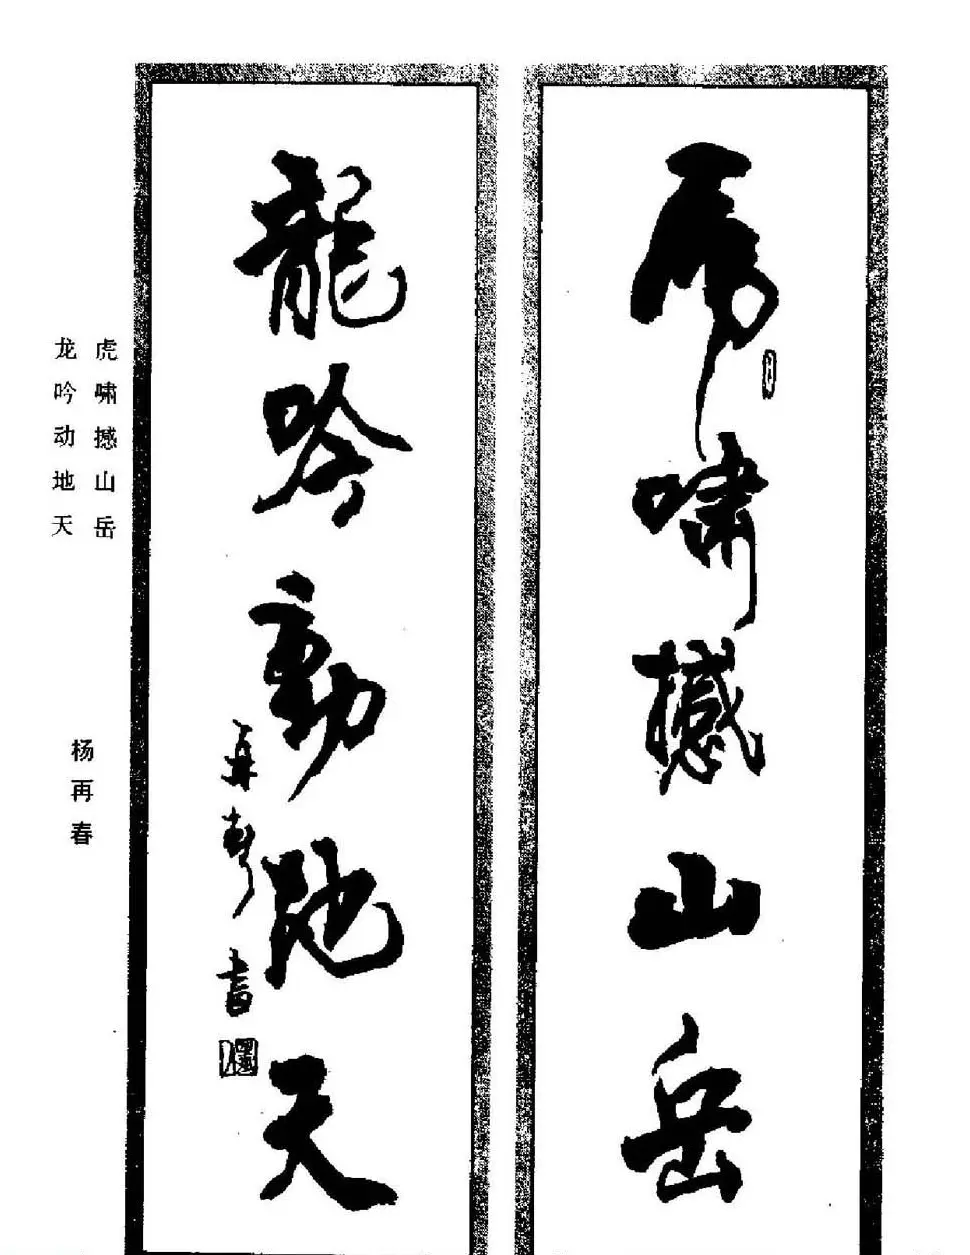 虎啸撼山岳
龍吟動地天
再春書
虎啸撼山岳
龙吟动地天
杨再春